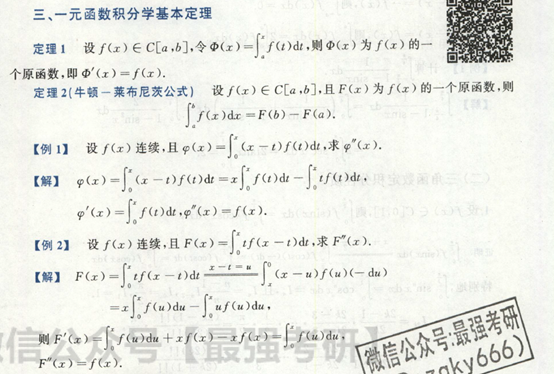 三、一元函数积分学基本定理
定理1 设 f(x)∈C[a,b],令Φ(x)=∫ₐˣ f(t)dt,则Φ(x)为 f(x)的一
个原函数,即Φ′(x)=f(x).
定理2(牛顿—莱布尼茨公式) 设 f(x)∈C[a,b],且F(x)为 f(x)的一个原函数,则
∫ₐᵇ f(x)dx=F(b)-F(a).
【例1】 设 f(x)连续,且φ(x)=∫₀ˣ(x-t)f(t)dt,求φ″(x).
【解】 φ(x)=∫₀ˣ(x-t)f(t)dt=x∫₀ˣ f(t)dt-∫₀ˣ tf(t)dt,
φ′(x)=∫₀ˣ f(t)dt,φ″(x)=f(x).
【例2】 设 f(x)连续,且F(x)=∫₀ˣ tf(x-t)dt,求F″(x).
【解】 F(x)=∫₀ˣ tf(x-t)dt x-t=u ∫ₓ⁰(x-u)f(u)(-du)
=x∫₀ˣ f(u)du-∫₀ˣ uf(u)du,
则F′(x)=∫₀ˣ f(u)du+xf(x)-xf(x)=∫₀ˣ f(u)du,
F″(x)=f(x).
信公众号【最强考研】
微信公众号:最强考研
zqky666)